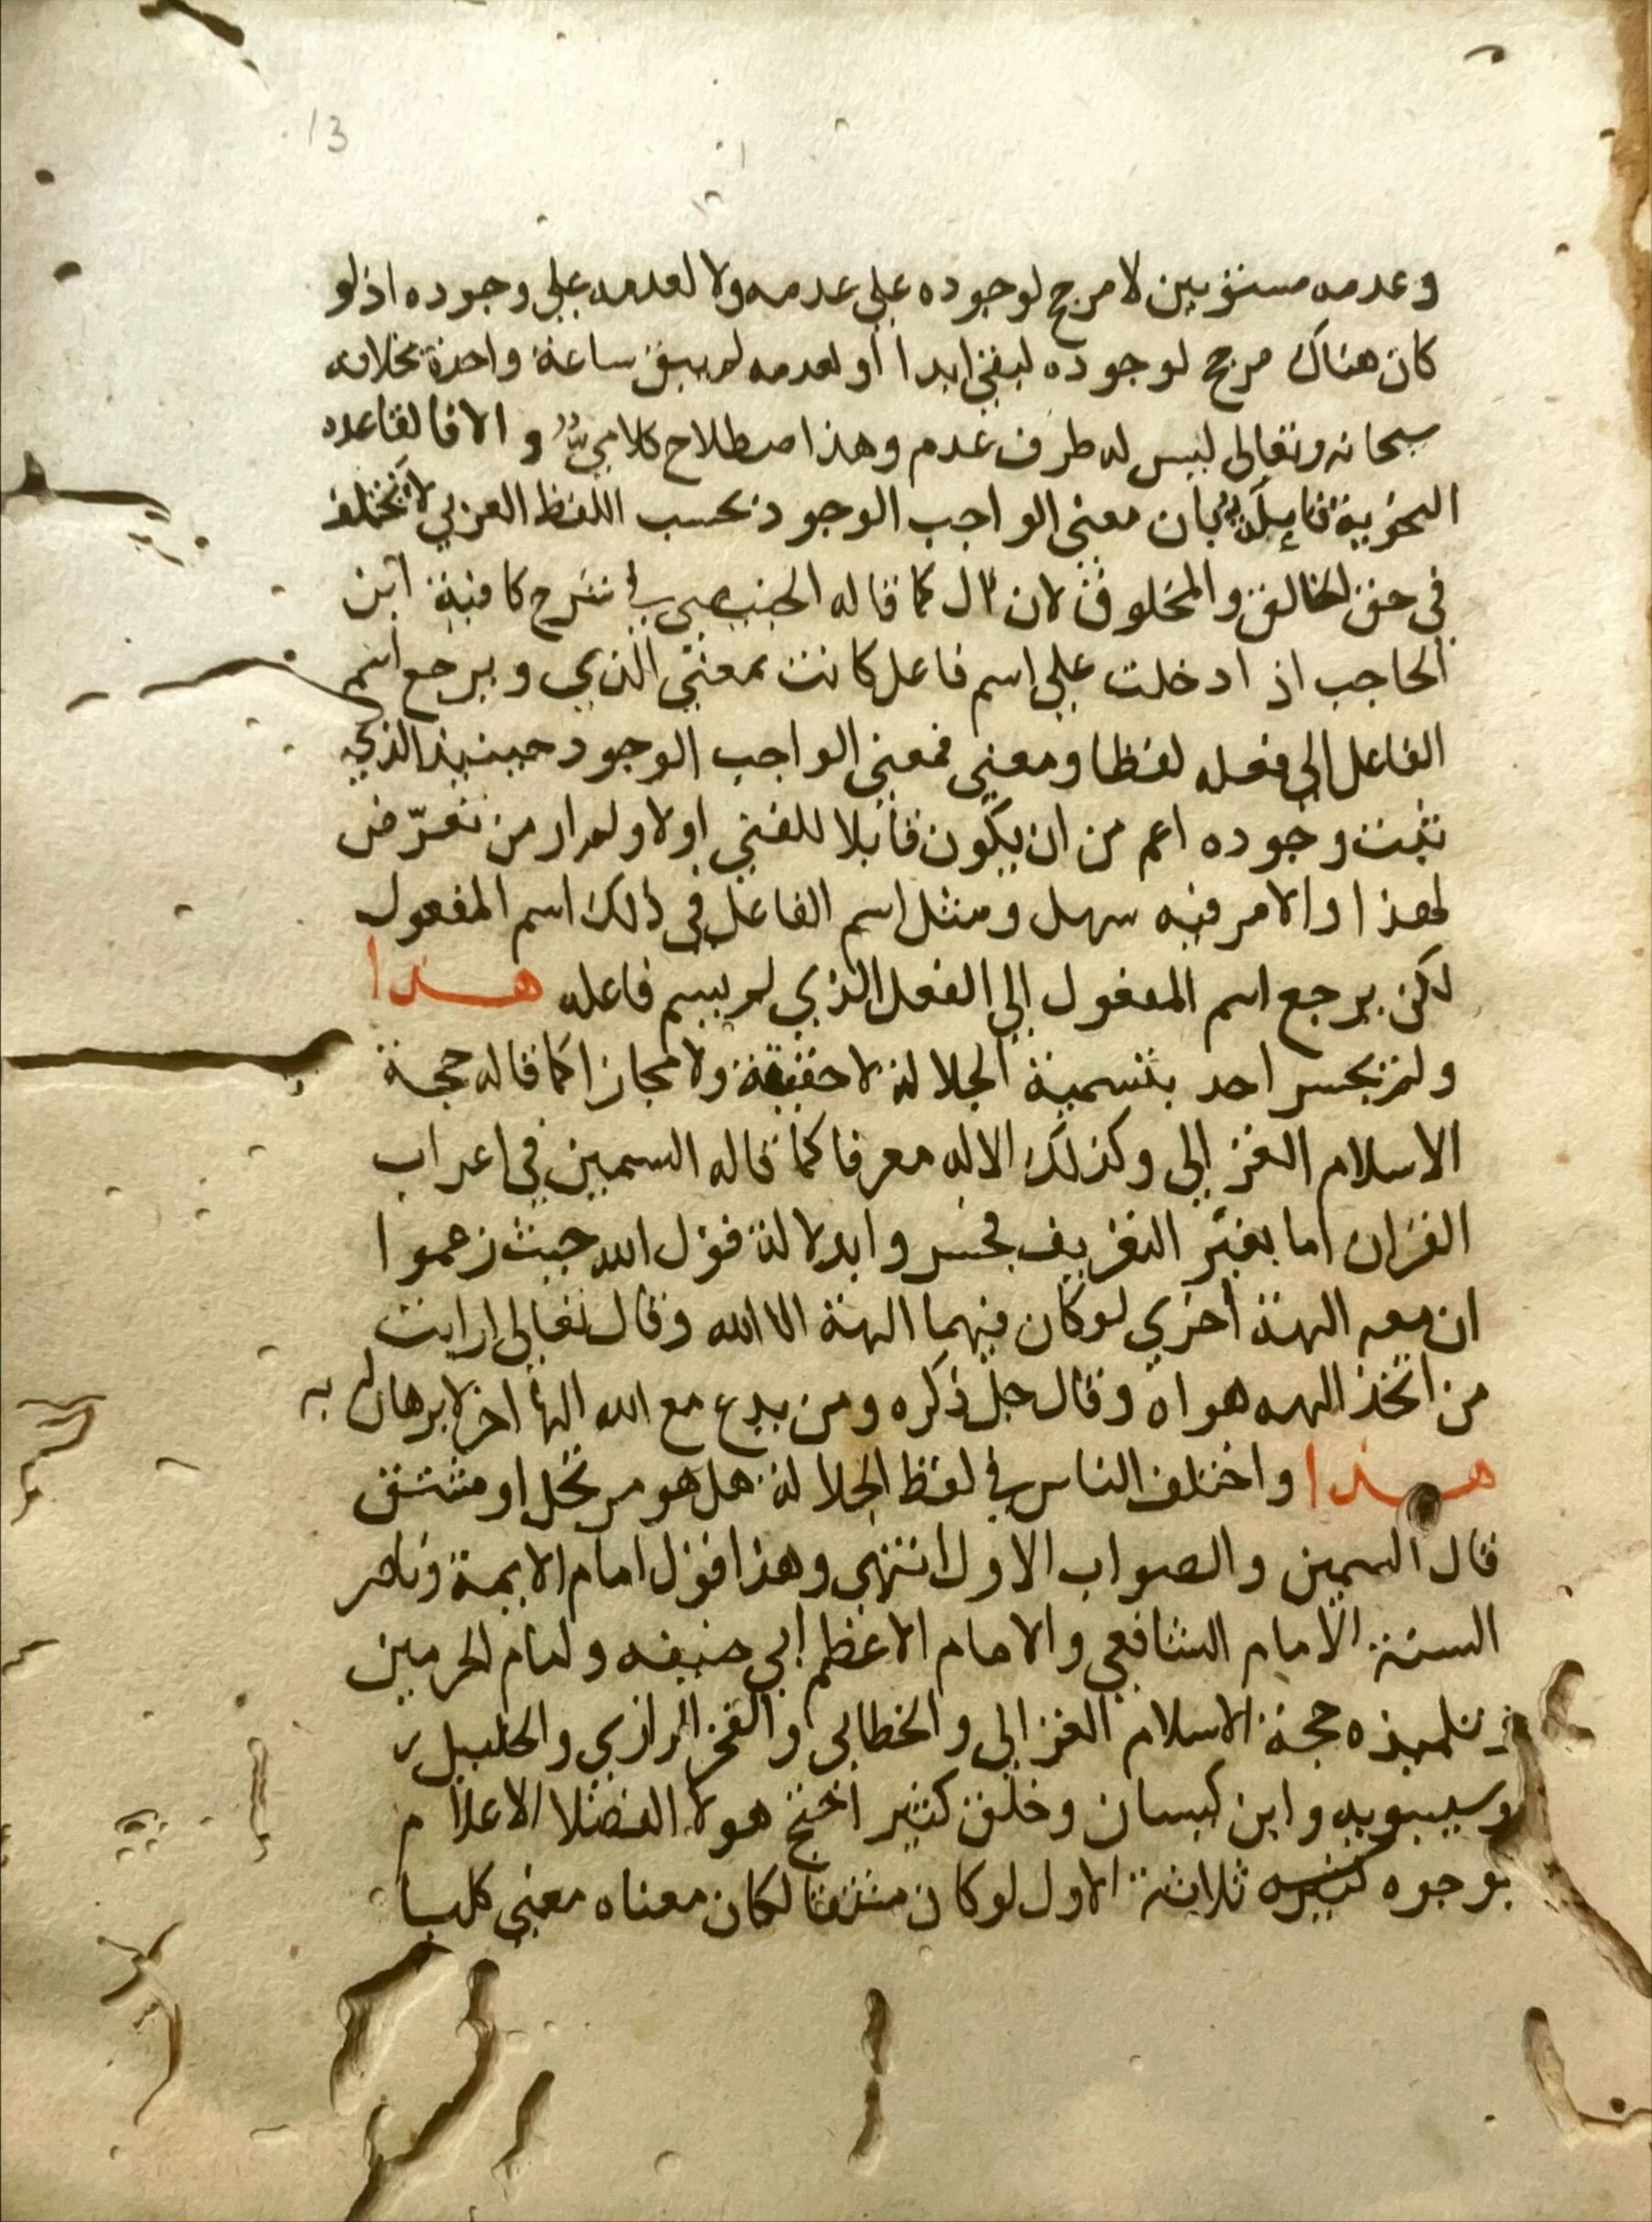 13
وعدمه مستويين لا مرجح لوجوده علي عدمه ولا لعدمه علي وجوده اذ لو
كان هناك مرجح لوجوده لبقي ابدا او لعدمه لم يبق ساعة واحدة بخلافه
سبحانه وتعالي ليس له طرف عدم وهذا اصطلاح كلامي والا فالقاعده
النحوية قايلة بان معني الواجب الوجود بحسب اللفظ العربي لا تختلف
في حق الخالق والمخلوق لان ال كما قاله الخبيصي في شرح كافية ابن
الحاجب اذ ادخلت علي اسم فاعل كانت بمعني الذي ويرجع اسم
الفاعل الي فعله لفظا ومعني فمعني الواجب الوجود حينيذ الذي
ثبت وجوده اعم من ان يكون قابلا للفني اولا ولم ار من تعرّض
لهذا والامر فيه سهل ومثل اسم الفاعل في ذلك اسم المفعول
لكن يرجع اسم المفعول الي الفعل الذي لم يسم فاعله هذا
ولم يجسر احد بتسمية الجلالة لا حقيقة ولا مجازا كما قاله حجة
الاسلام الغزالي وكذلك الاله معرفا كما قاله السمين في اعراب
القران اما بغير التعريف فجسروا بدلالة قول الله حيث زعموا
ان معه الهة اخري لو كان فيهما الهة الا الله وقال تعالي ارايت
من اتخذ الهه هواه وقال جل ذكره ومن يدع مع الله الها اخر لا برهان له به
هذا واختلف الناس في لفظ الجلالة هل هو مرتجل او مشتق
قال السمين والصواب الاول انتهي وهذا قول امام الايمة وناصر
السنة الامام الشافعي والامام الاعظم ابي حنيفه وامام الحرمين
وتلميذه حجة الاسلام الغزالي والخطابي والفخر الرازي والخليل
وسيبويه وابن كيسان وخلق كثير احتج هولا الفضلا الاعلام
بوجوه كثيره ثلاثة الاول لو كان مشتقا لكان معناه معني كليا